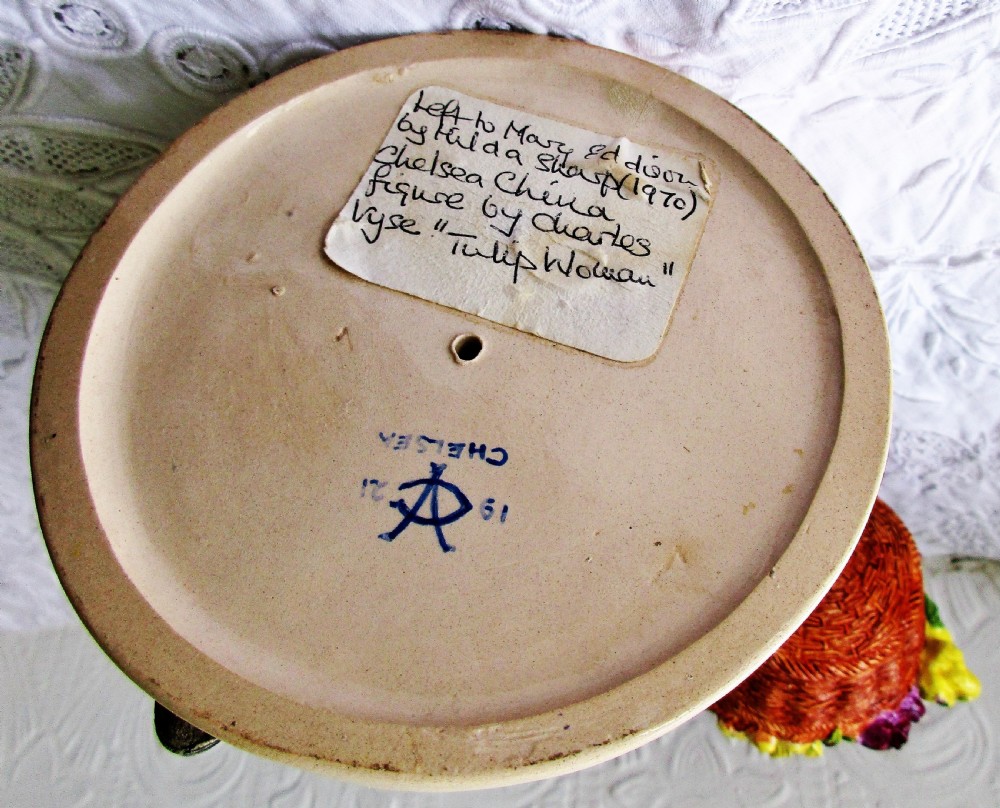 Left to Mary Eddison
by Hilda Sharp (1970)
Chelsea China
figure by Charles
Vyse "Tulip Woman"
CHELSEA
19 21